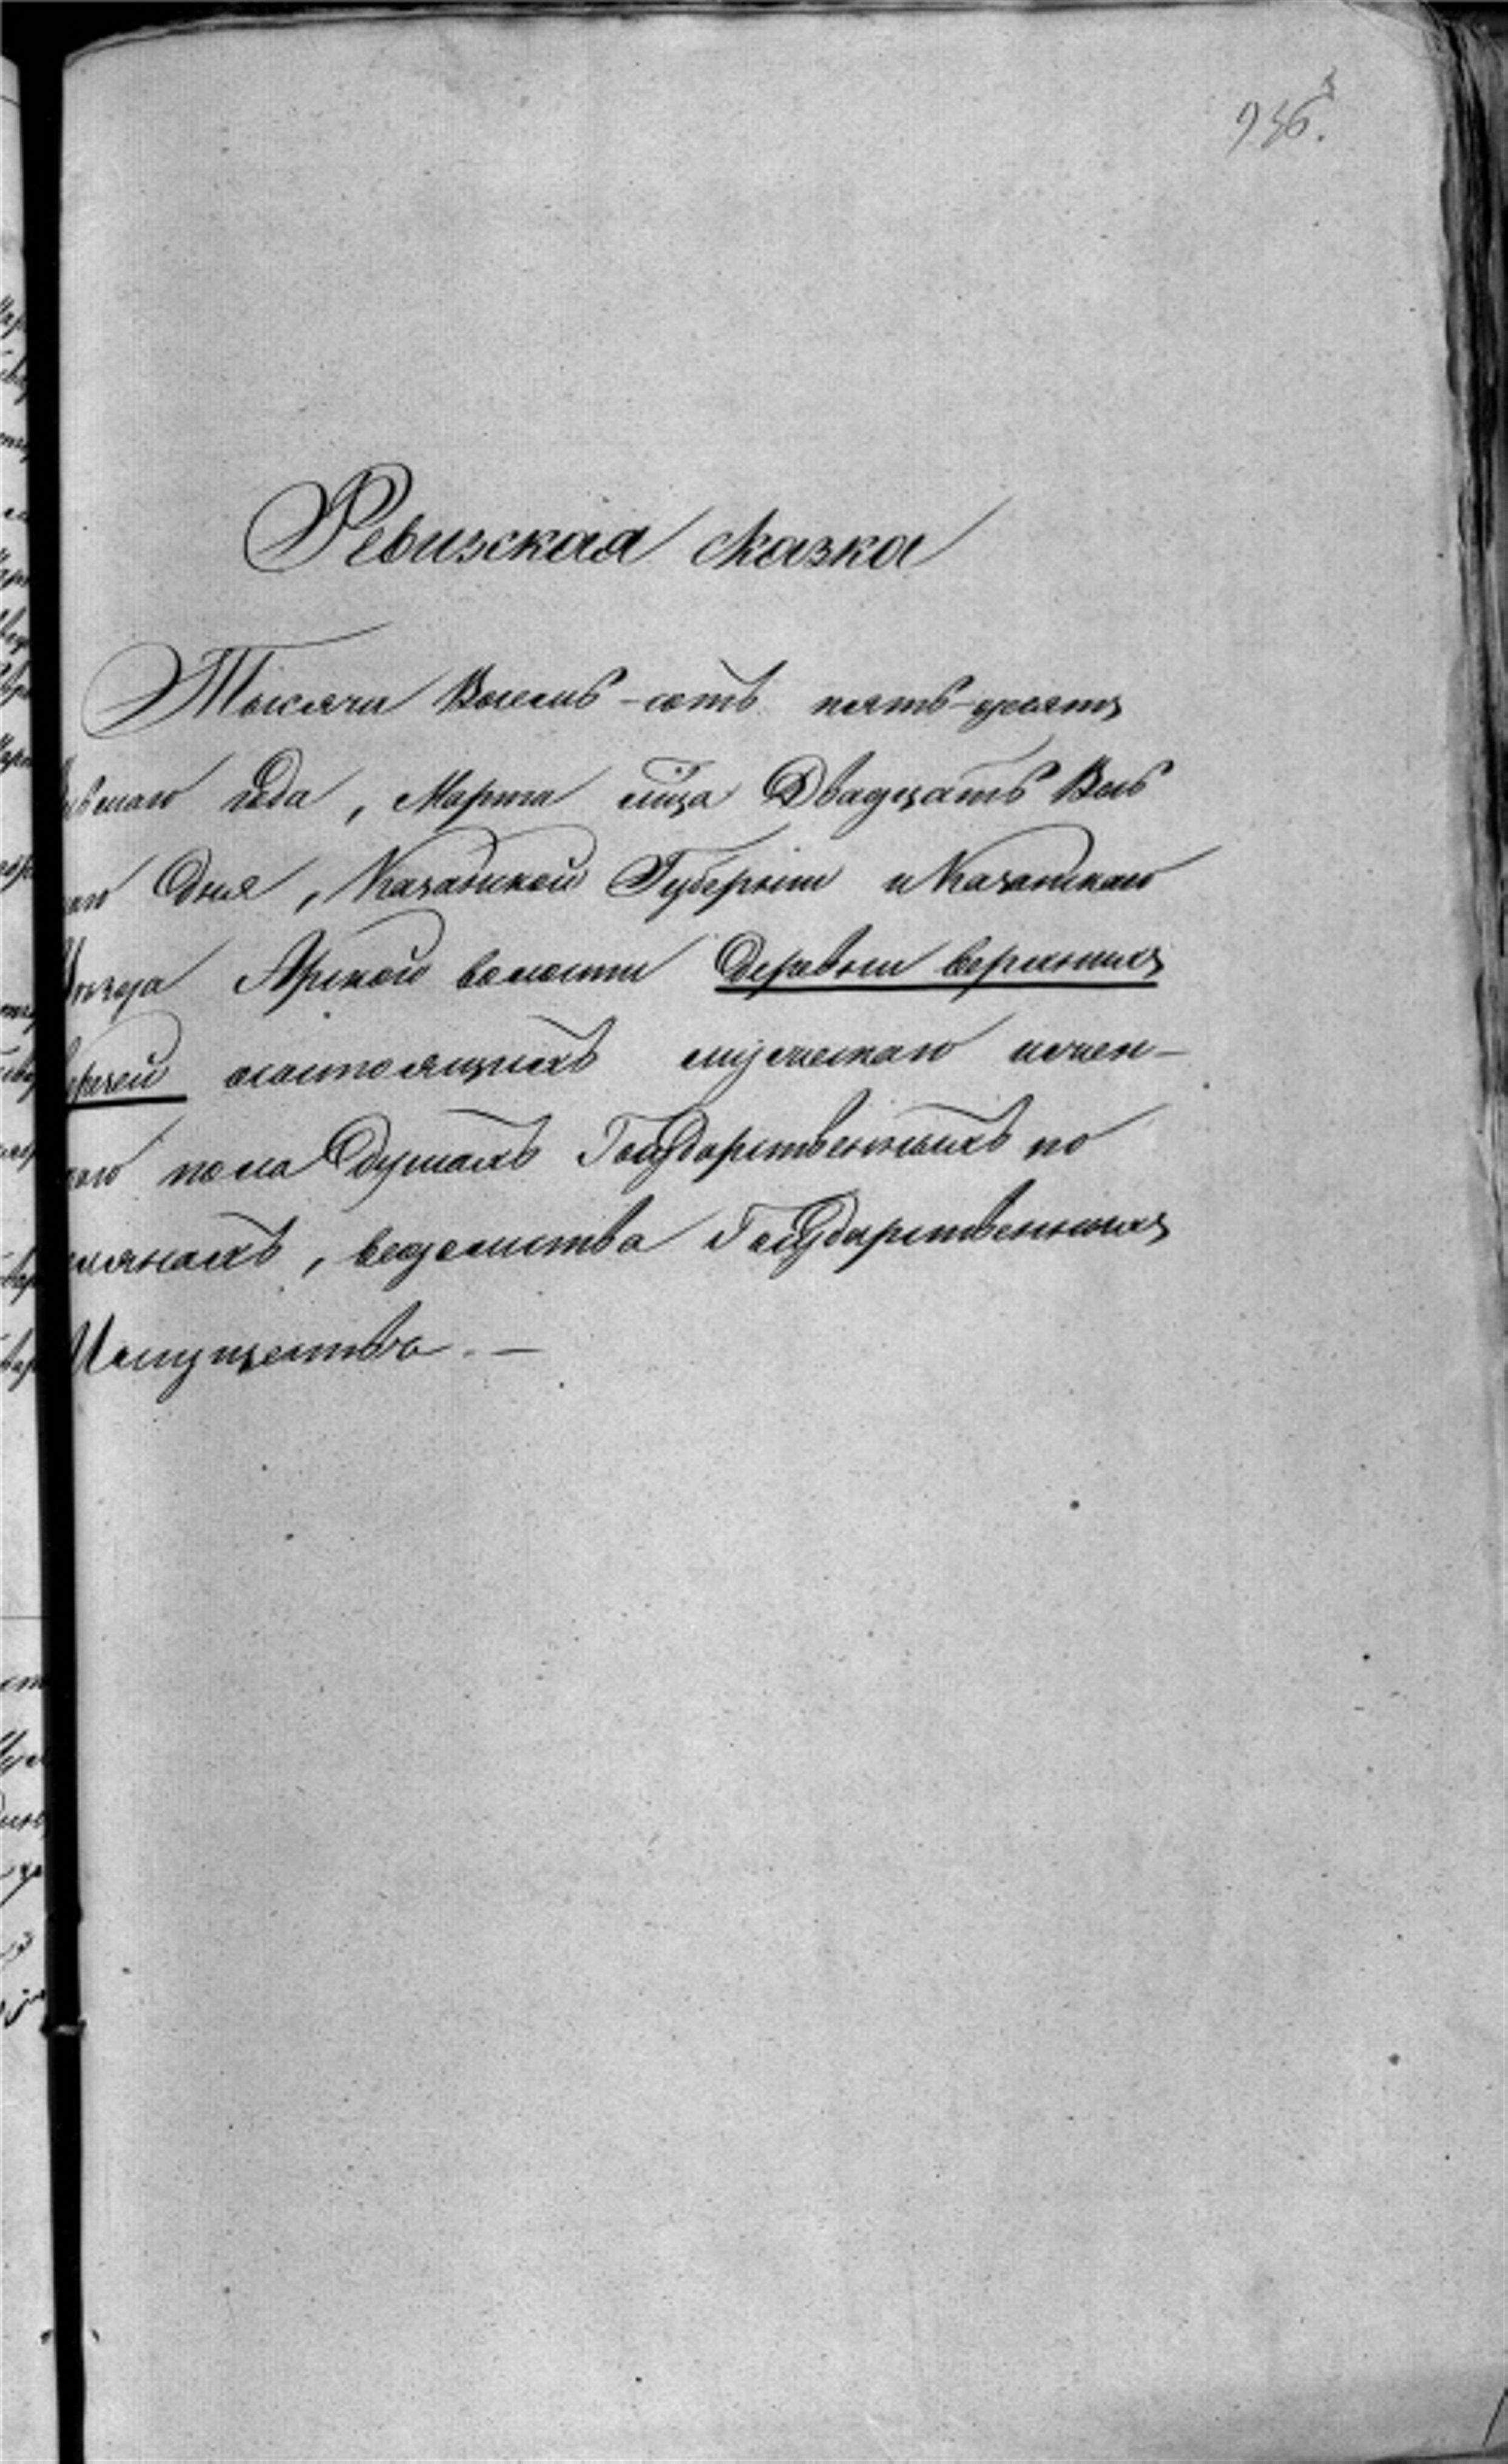 936.
Ревизская сказка
Тысячи Восемь-сотъ пять-десятъ
маго года, Марта мѣца Двадцать Вось
Дня, Казанской Губерніи и Казанскаго
уѣзда Арской волости Деревни верхнихъ
состоящихъ мужескаго и жен-
пола душахъ Государственныхъ по
селянахъ, ведомства Государственныхъ
Имуществъ. —